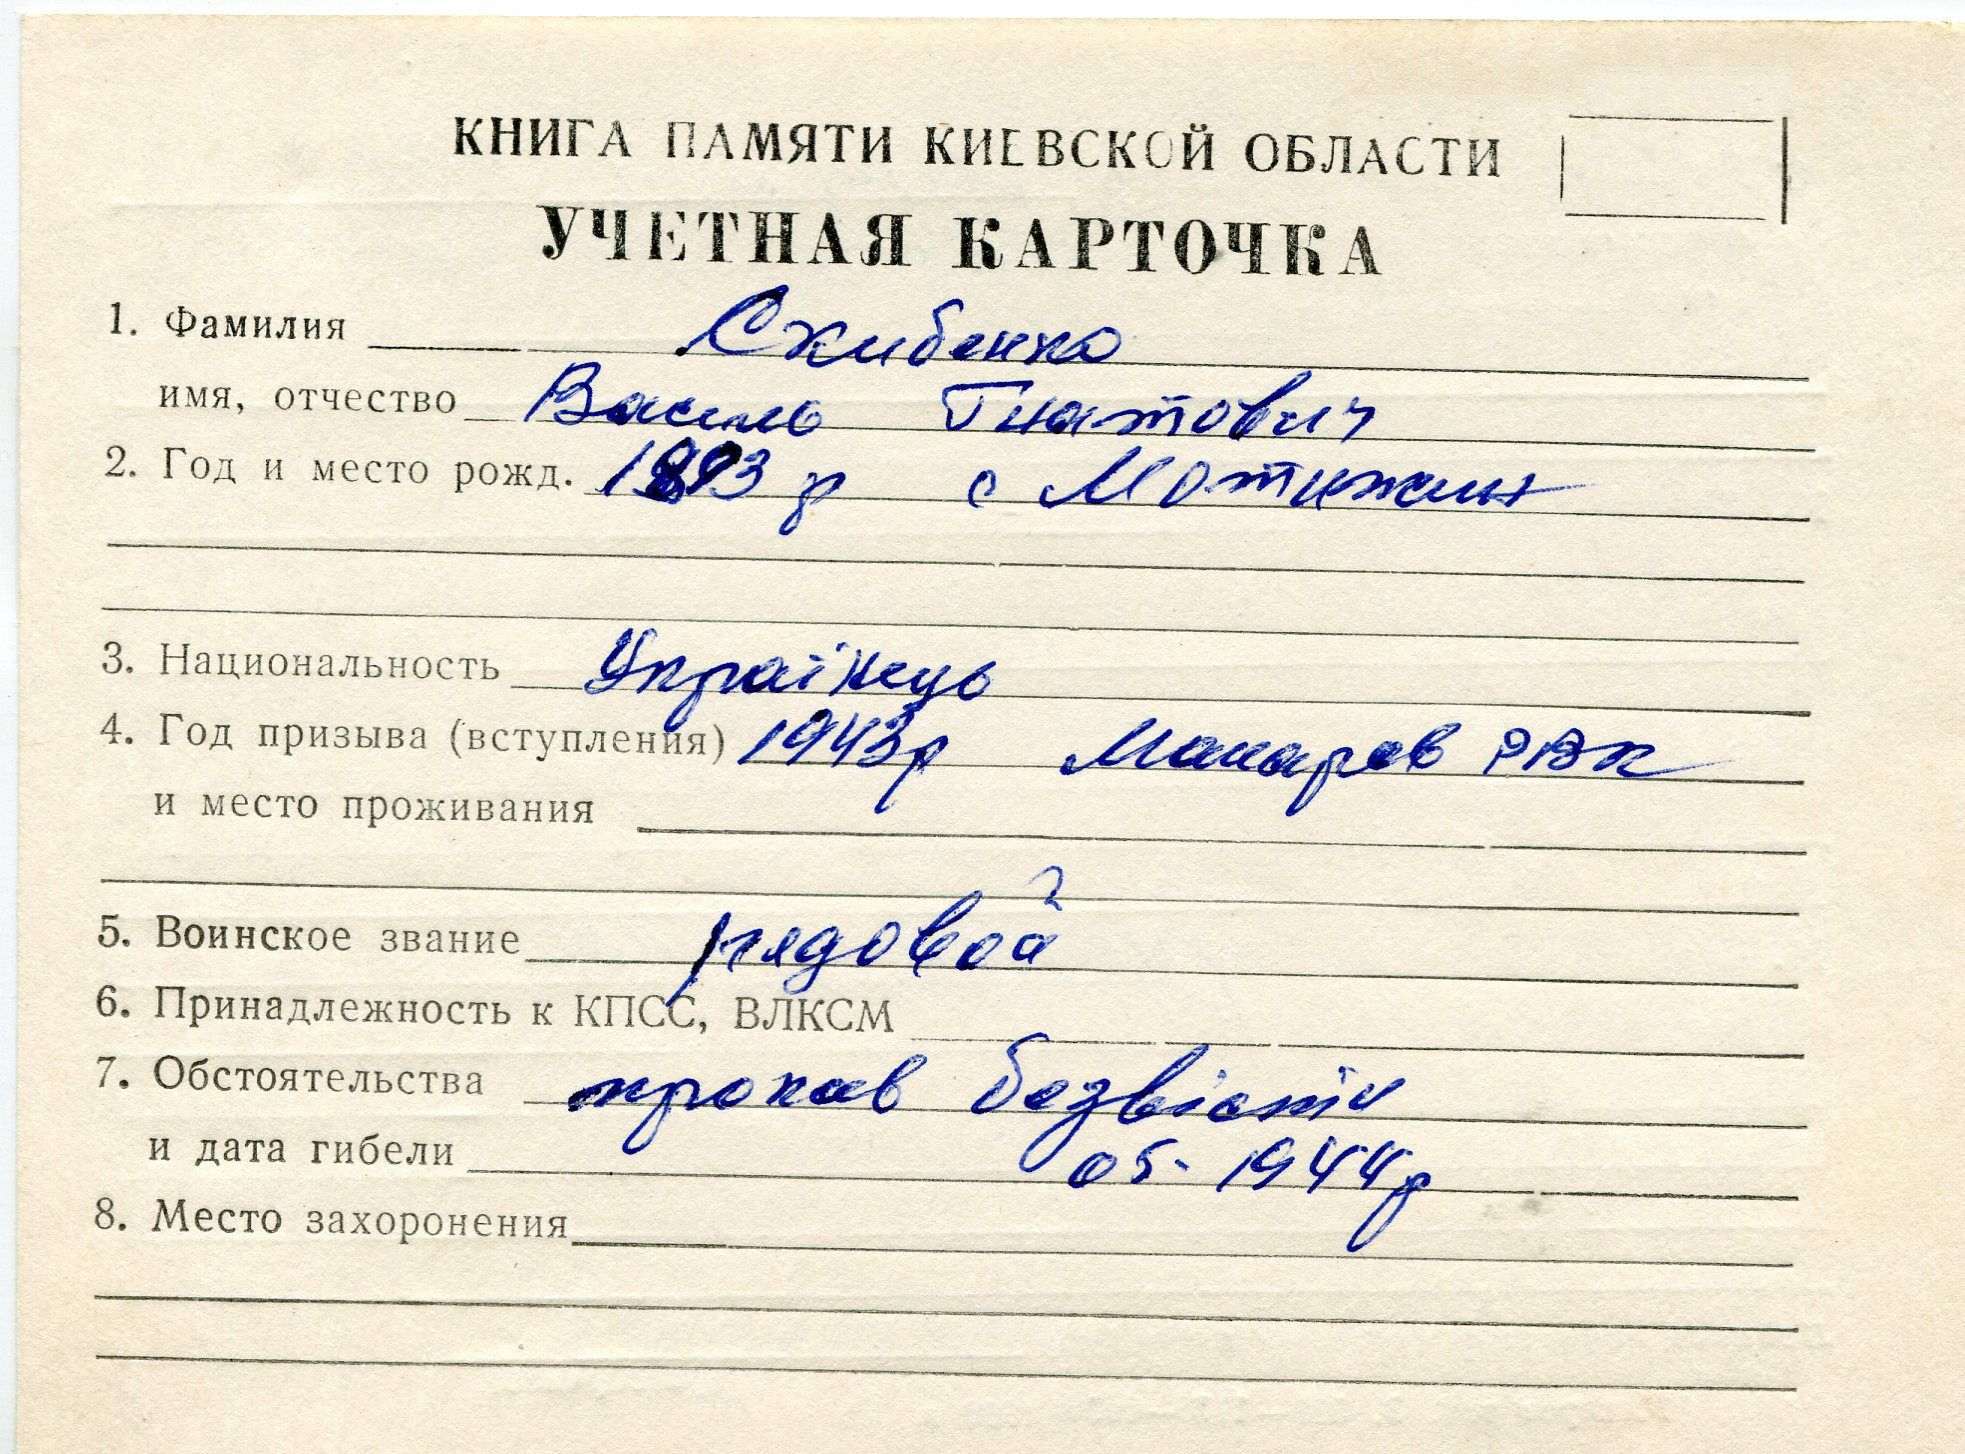 КНИГА ПАМЯТИ КИЕВСКОЙ ОБЛАСТИ
УЧЕТНАЯ КАРТОЧКА
1. Фамилия Скибенко
имя, отчество Василь Гнатович
2. Год и место рожд. 1893 р с Мотижин
3. Национальность Українець
4. Год призыва (вступления) 1943р Макаров РВК
и место проживания
5. Воинское звание рядовой
6. Принадлежность к КПСС, ВЛКСМ
7. Обстоятельства пропав безвісти
и дата гибели 05-1944р
8. Место захоронения